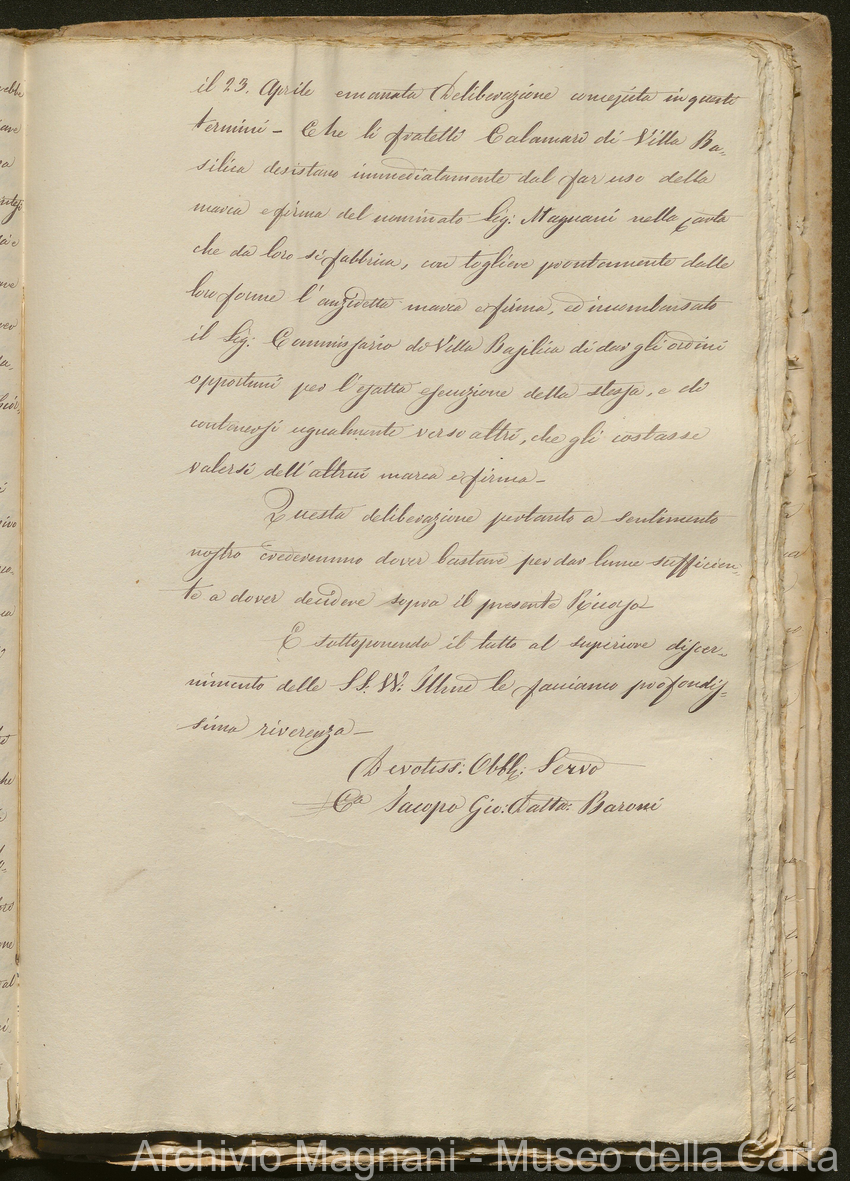 il 23. Aprile emanata Deliberazione concepita in questi
termini - Che li fratelli Calamari di Villa Ba-
silica desistano immediatamente dal far uso della
marca e firma del nominato Sig: Magnani nella carta
che da loro si fabbrica, con togliere prontamente dalle
loro forme l'anzidetta marca e firma, ed incombensato
il Sig: Commissario di Villa Basilica di dar gli ordini
opportuni per l'esatta esecuzione della stessa, e di
contenersi egualmente verso altri, che gli costasse
valersi dell'altrui marca e firma -
Questa deliberazione pertanto a sentimento
nostro crederemmo dover bastare per dar lume sufficien-
te a dover decidere sopra il presente Ricorso
E sottoponendo il tutto al superiore discer-
nimento delle SS. VV: Illme le facciamo profondis-
sima riverenza -
Devotiss: Obbl: Servo
Jacopo Gio: Batta: Baroni
Archivio Magnani - Museo della Carta